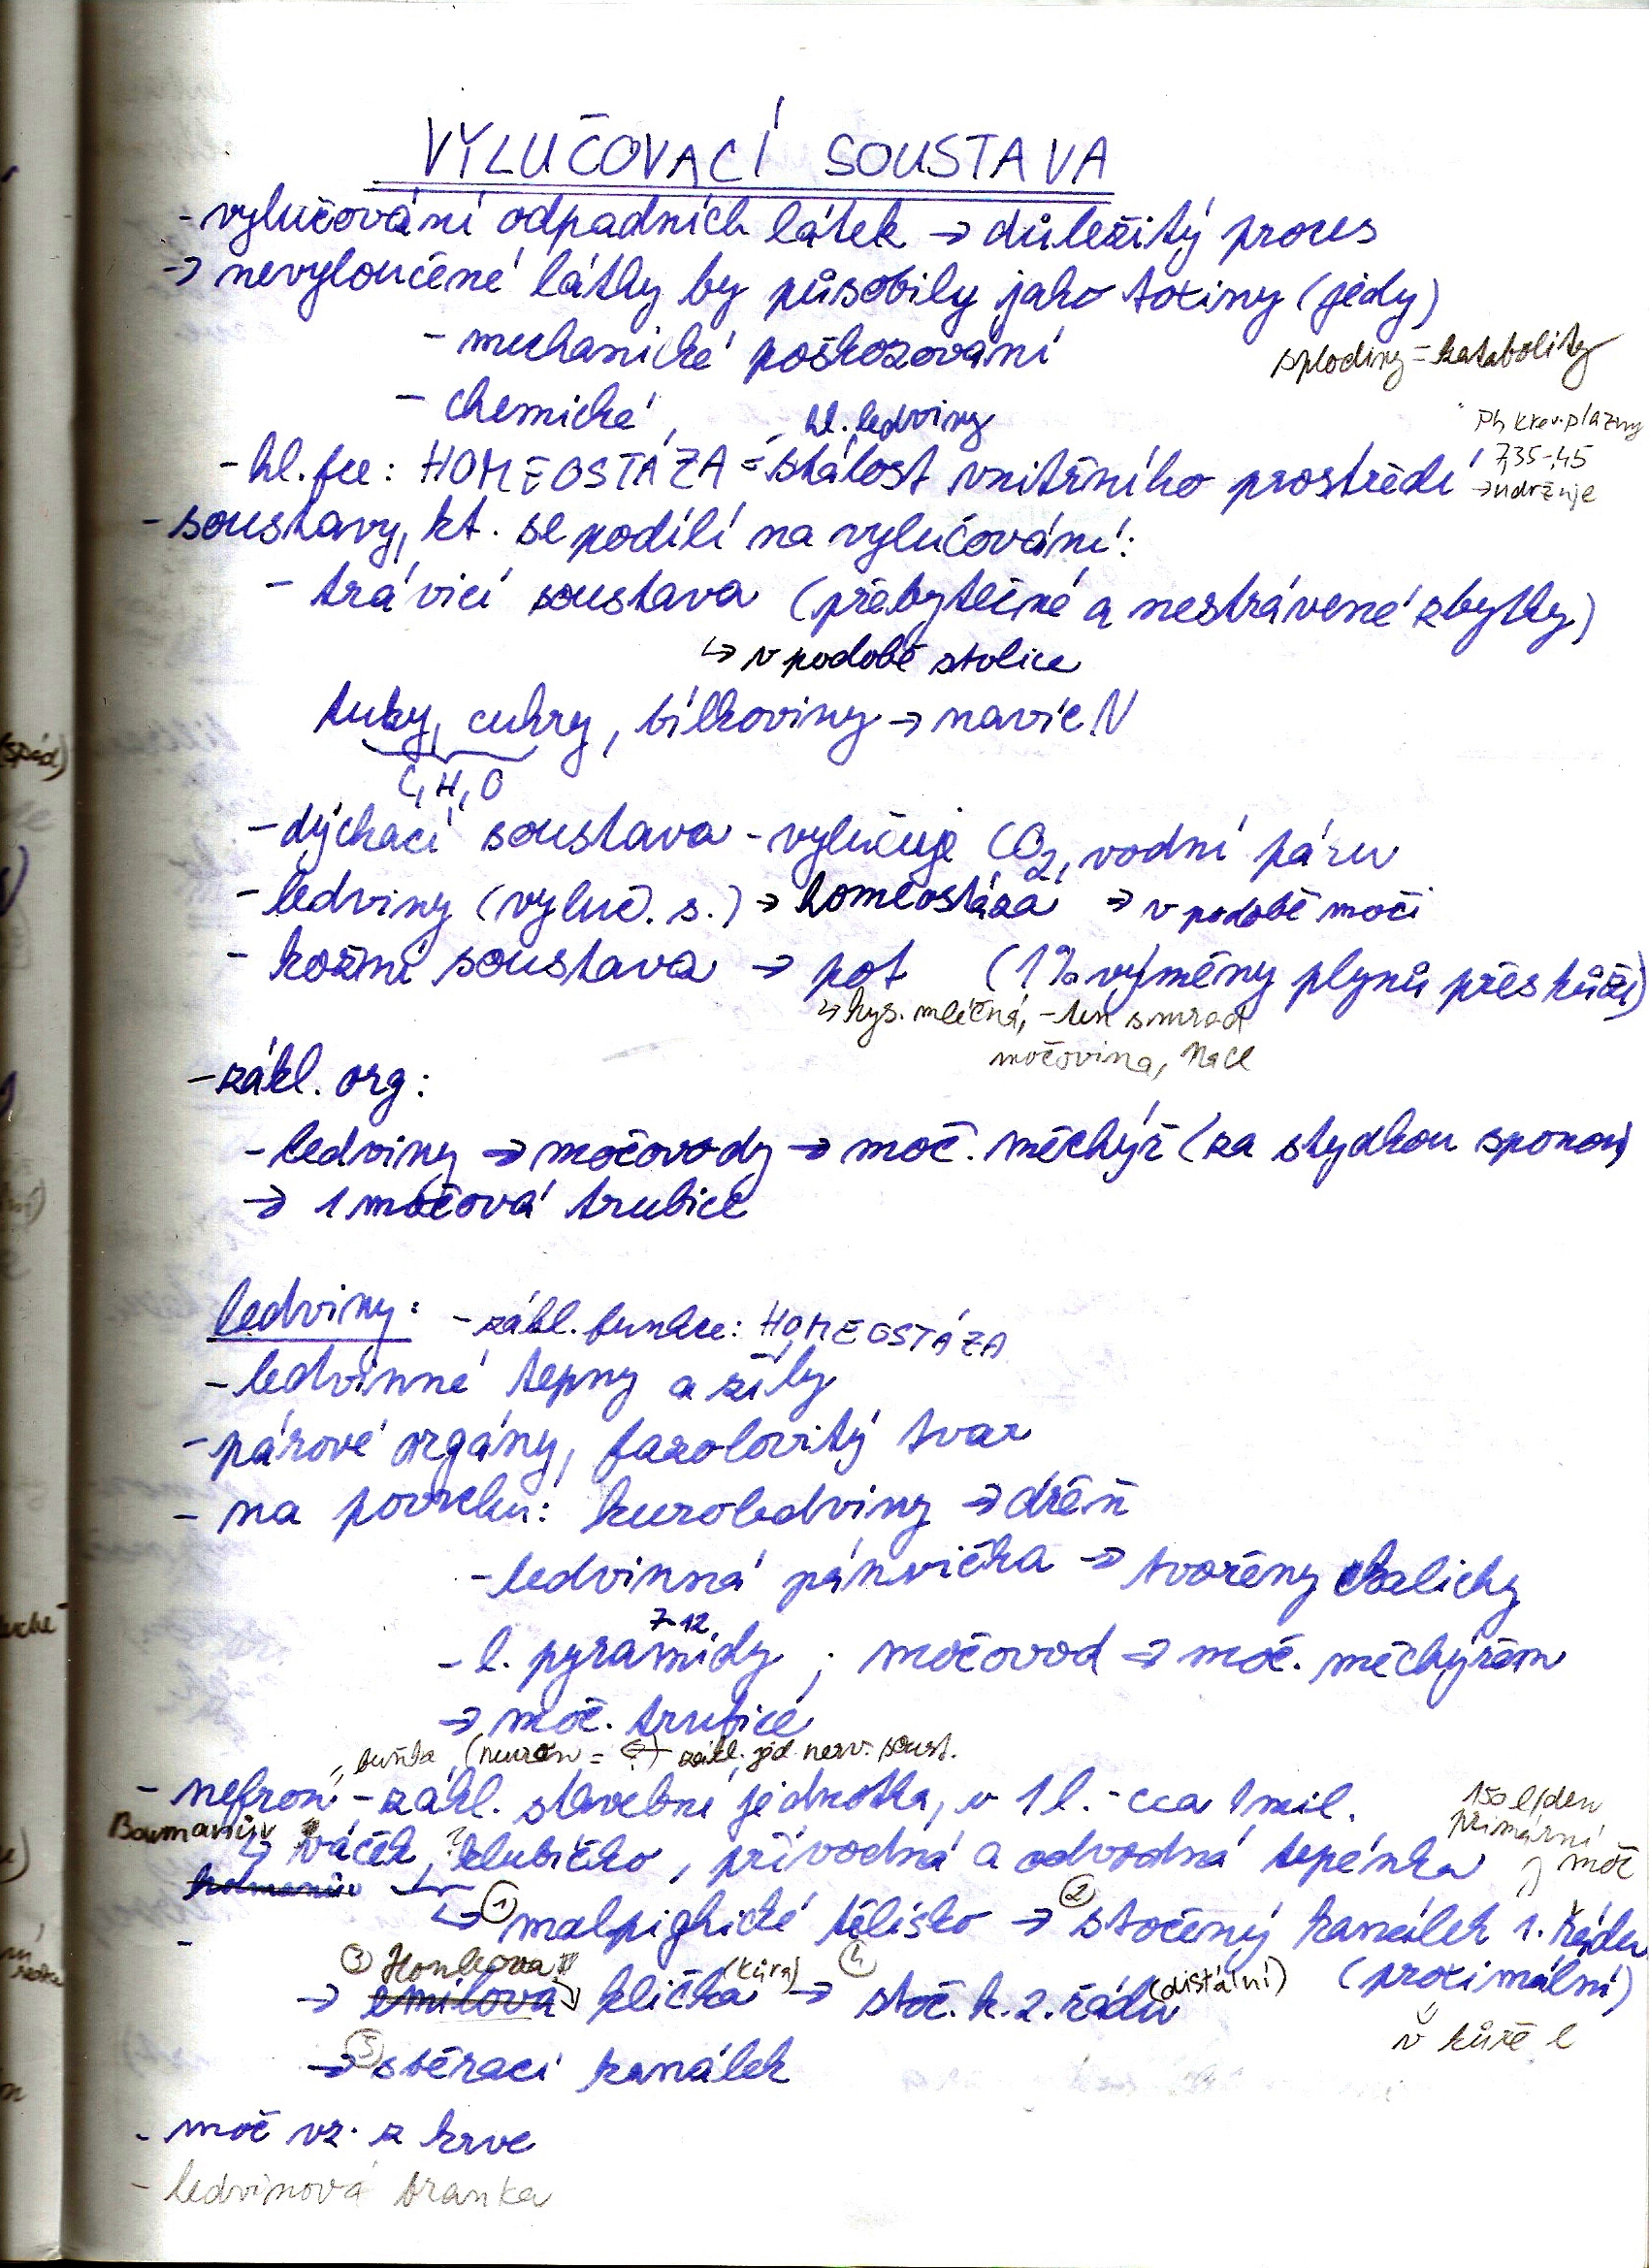 VYLUČOVACÍ SOUSTAVA
- vylučování odpadních látek → důležitý proces
→ nevyloučené látky by působily jako toxiny (jedy)
- mechanické poškozování
splodiny = katabolity
- chemické
hl. ledviny
Ph krev. plazmy
7,35-,45
→ udržuje
- hl. fce: HOMEOSTÁZA = stálost vnitřního prostředí
- soustavy, kt. se podílí na vylučování:
- trávicí soustava (přebytečné a nestrávené zbytky)
↳ v podobě stolice
tuky, cukry, bílkoviny → navíc N
C, H, O
- dýchací soustava - vylučuje CO2, vodní páru
- ledviny (vyluč. s.) → homeostáza → v podobě moči
- kožní soustava → pot (1% výměny plynů přes kůži)
↳ kys. mléčná, - ten smrad
močovina, NaCl
- zákl. org:
- ledviny → močovody → moč. měchýř (za stydkou sponou)
→ 1 močová trubice
ledviny: - zákl. funkce: HOMEOSTÁZA
- ledvinné tepny a žíly
- párové orgány, fazolovitý tvar
- na povrchu: kůra ledviny → dřeň
- ledvinná pánvička → tvořeny kalichy
7-12
- l. pyramidy ; močovod → moč. měchýřem
→ moč. trubice
buňka (neuron = zákl. jed. nerv. soust.
- nefron - zákl. stavební jednotka, v 1 l. - cca 1 mil.
150 l/den
primární
moč
Bowmanův
↳ váček, klubíčko, přívodná a odvodná tepénka
↳ ① malpighické tělísko → ② stočený kanálek 1. řádu
(proximální)
v kůře l
③ Henleova
→ emilova klička (kůra) → ④ stoč. k. 2. řádu (distální)
→ ⑤ sběrací kanálek
- moč vz. z krve
- ledvinová branka